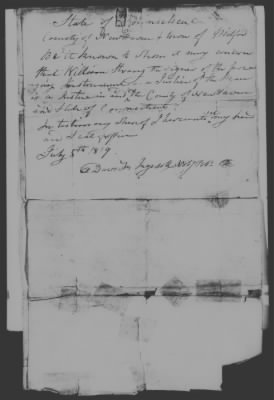 State of Connecticut
County of New Haven & town of Milford
Be it known to whom it may concern
that William Strong the signer of the fore
going instrument is Justice of the Peace
is a Justice in and for the County of New Haven
and State of Connecticut
In testimony whereof I hereunto my hand
and Seal office
July 8th 1819